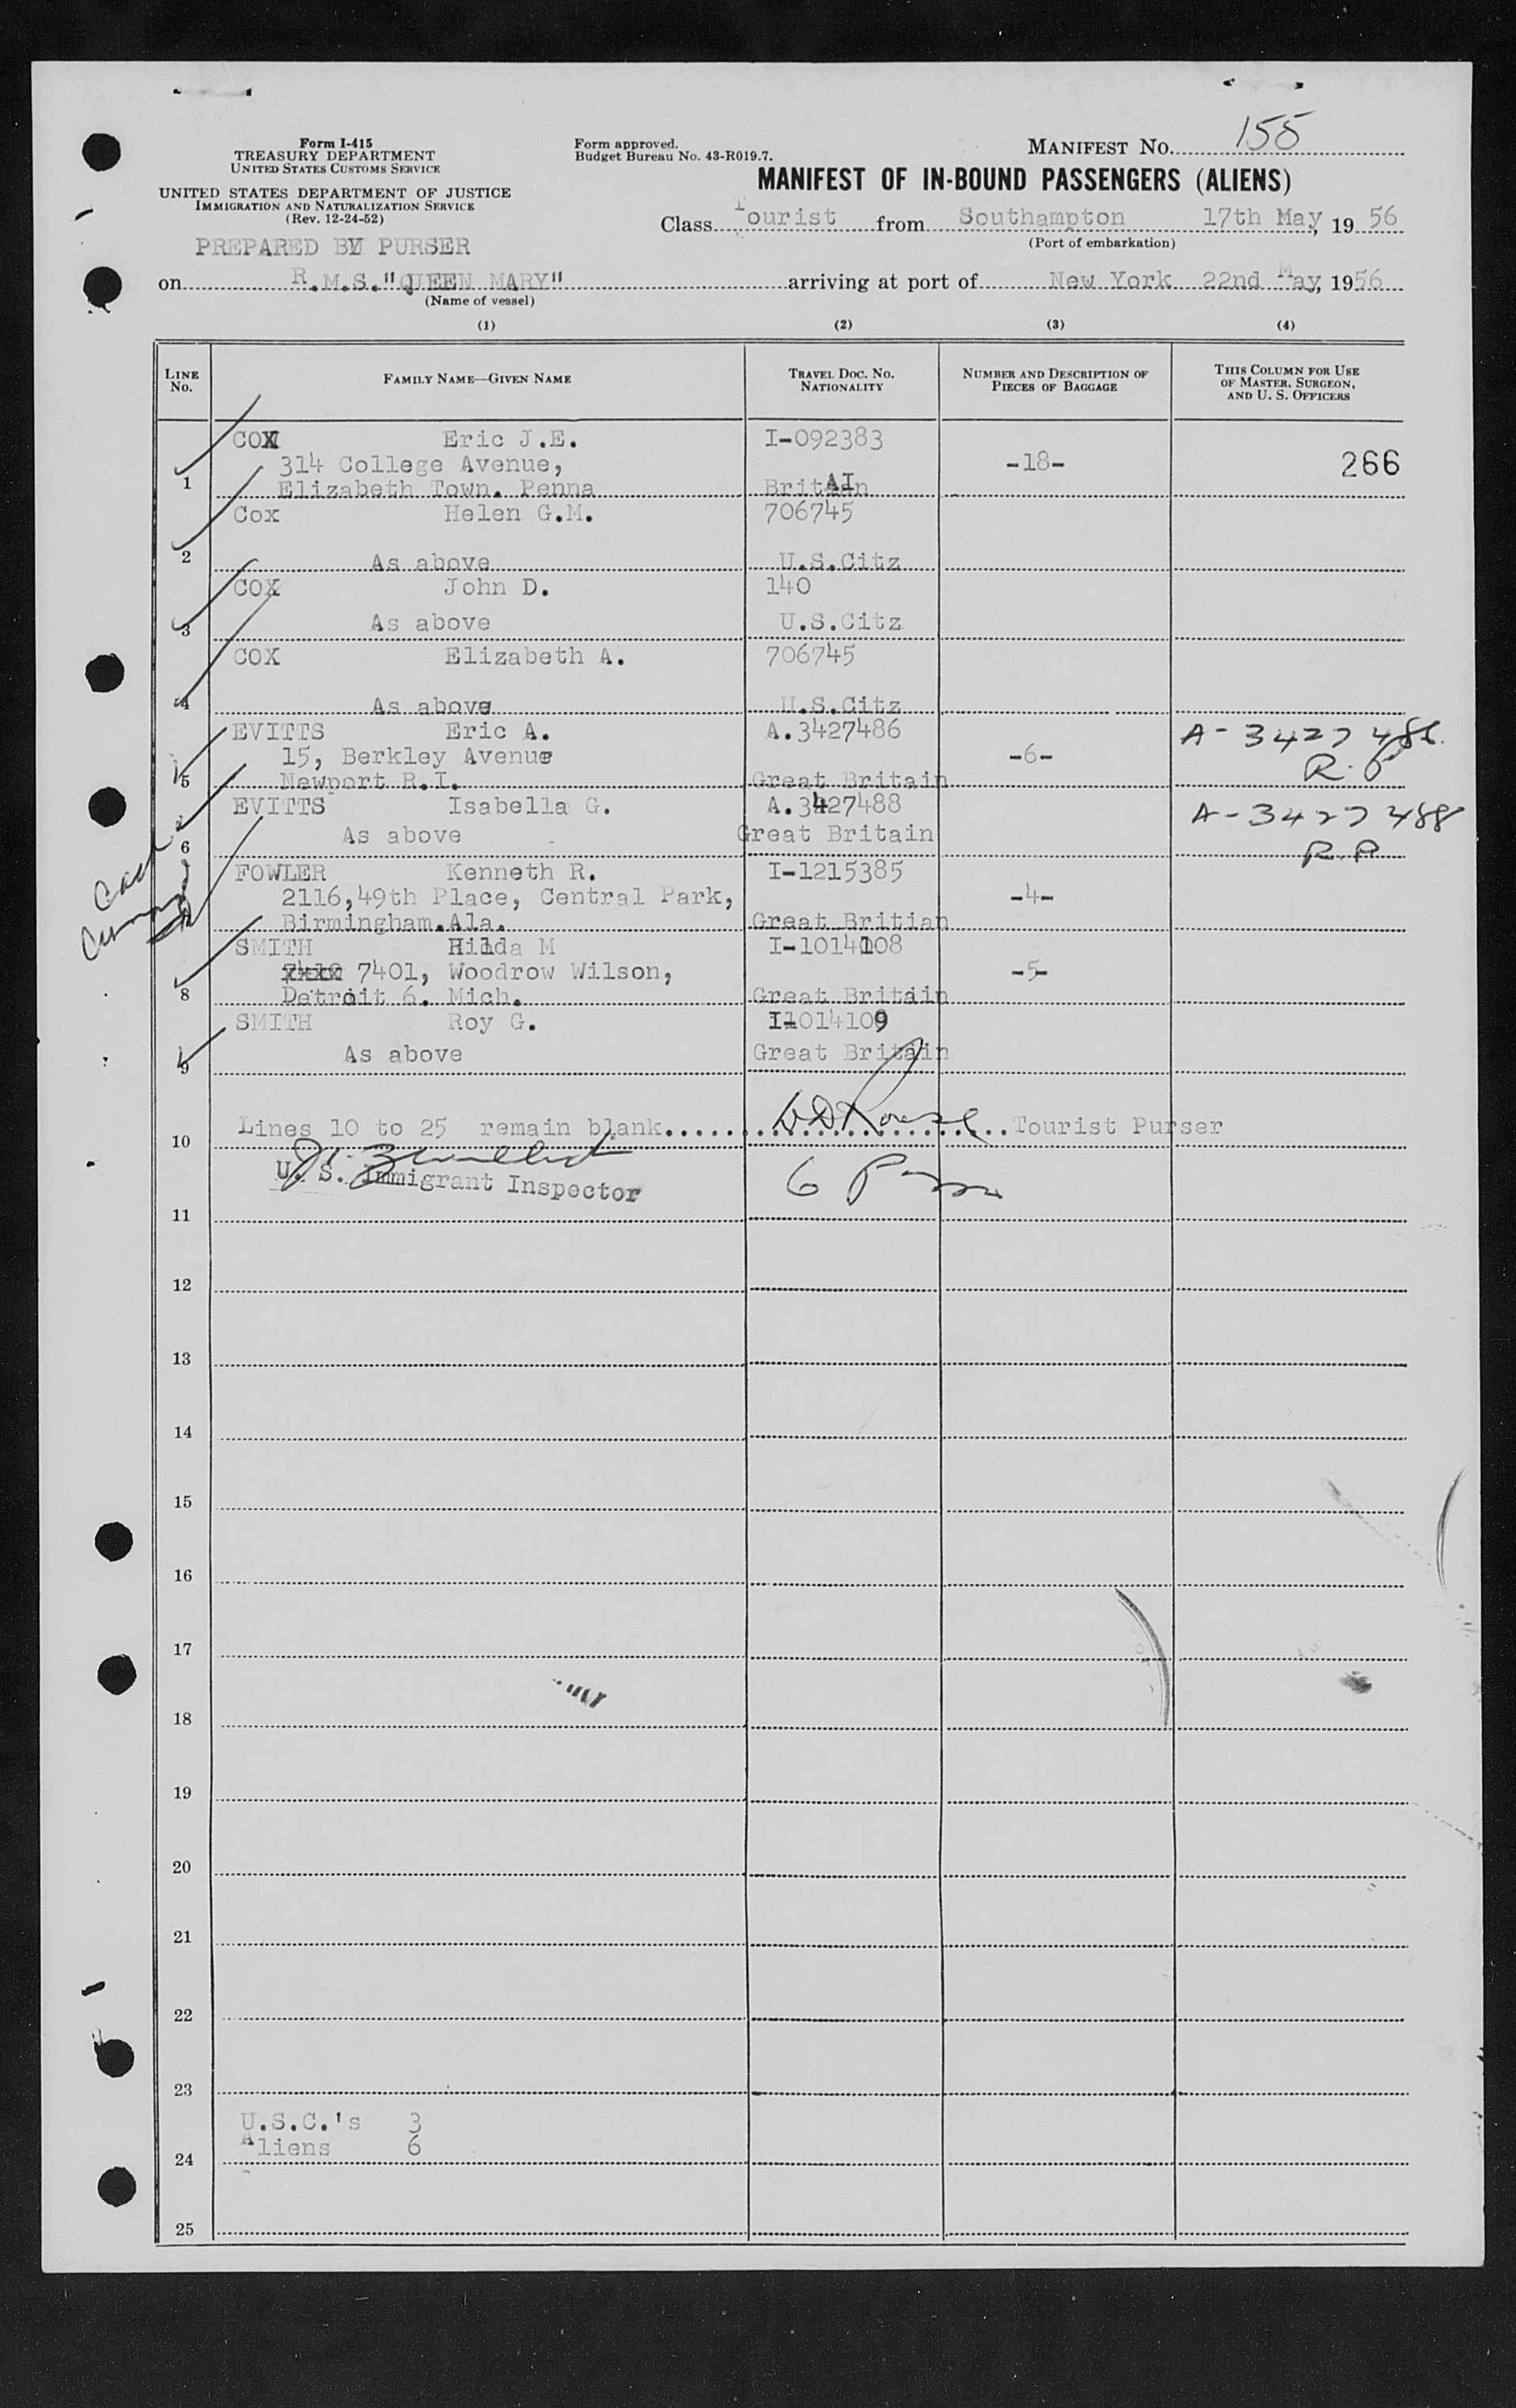 Form I-415
TREASURY DEPARTMENT
UNITED STATES CUSTOMS SERVICE
UNITED STATES DEPARTMENT OF JUSTICE
IMMIGRATION AND NATURALIZATION SERVICE
(Rev. 12-24-52)
PREPARED BY PURSER
Form approved.
Budget Bureau No. 43-R019.7.
MANIFEST No. 155
MANIFEST OF IN-BOUND PASSENGERS (ALIENS)
Class Tourist from Southampton 17th May, 1956
(Port of embarkation)
on R.M.S."QUEEN MARY" arriving at port of New York 22nd May, 1956
(Name of vessel)
(1) (2) (3) (4)
LINE No. FAMILY NAME—GIVEN NAME TRAVEL DOC. NO. NATIONALITY NUMBER AND DESCRIPTION OF PIECES OF BAGGAGE THIS COLUMN FOR USE OF MASTER, SURGEON, AND U. S. OFFICERS
COX Eric J.E. I-092383
314 College Avenue, -18- 266
1 Elizabeth Town. Penna Britain
Cox Helen G.M. 706745
2 As above U.S.Citz
COX John D. 140
3 As above U.S.Citz
COX Elizabeth A. 706745
4 As above U.S.Citz
EVITTS Eric A. A.3427486 A-3427486
15, Berkley Avenue -6- R.P
5 Newport R.I. Great Britain
EVITTS Isabella G. A.3427488 A-3427488
6 As above Great Britain R.P
FOWLER Kenneth R. I-1215385
2116,49th Place, Central Park, -4-
Birmingham.Ala. Great Britian
SMITH Hilda M I-1014108
7401, Woodrow Wilson, -5-
8 Detroit 6. Mich. Great Britain
SMITH Roy G. I-1014109
9 As above Great Britain
Lines 10 to 25 remain blank Tourist Purser
10
U. S. Immigrant Inspector 6
11
12
13
14
15
16
17
18
19
20
21
22
23
U.S.C.'s 3
Aliens 6
24
25